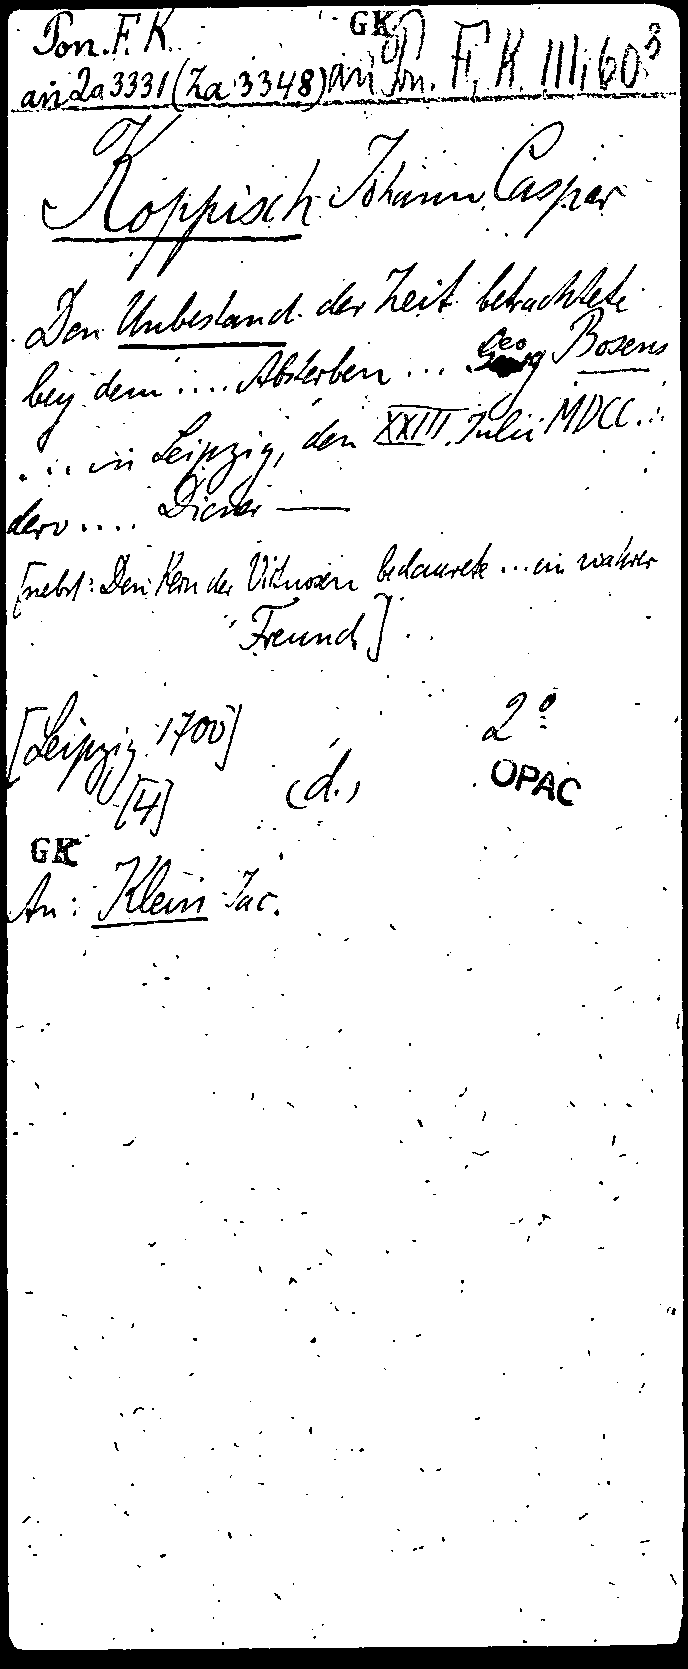 Pon. F. K. GK
an Za 3331 (Za 3348) an Pon. F. K. III, 60³
Koppisch Johann Caspar
Den Unbestand der Zeit betrachtete
bey dem .... Absterben ... Geo Bosens
... in Leipzig, den XXIII. Julii MDCC. ..
dero .... Diener —
[nebst: Den Kern der Virtuosen bedaurete ... ein wahrer
Freund]
[Leipzig 1700] 2°
[4] (d.) OPAC
GK
An: Klein Jac.